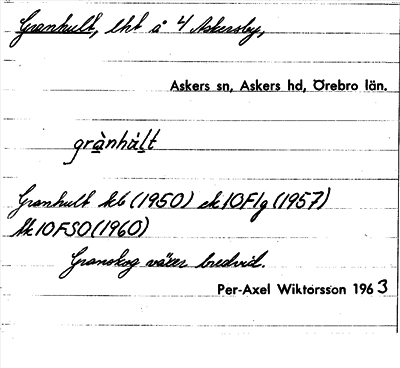 Granhult, lht å 4 Askersby,
Askers sn, Askers hd, Örebro län.
grànhùlt
Granhult hb (1950) ek 10F1g (1957)
tk 10FSO (1960)
Granskog växer bredvid.
Per-Axel Wiktorsson 1963